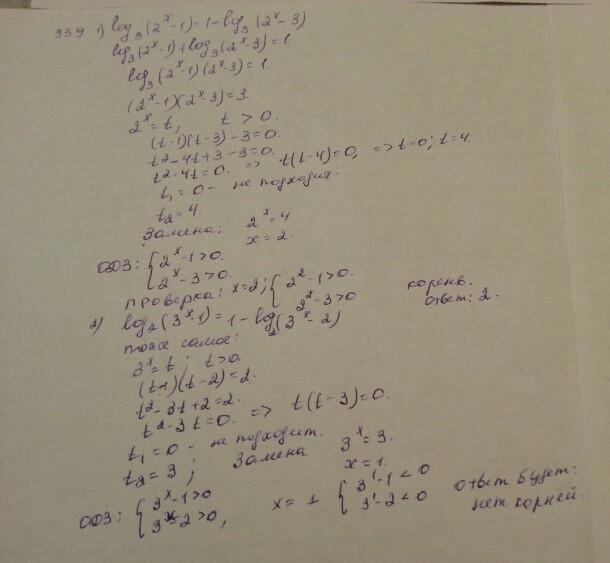 339 1) log₃(2ˣ-1)=1-log₃(2ˣ-3)
log₃(2ˣ-1)+log₃(2ˣ-3)=1.
log₃(2ˣ-1)(2ˣ-3)=1.
(2ˣ-1)(2ˣ-3)=3.
2ˣ=t, t>0.
(t-1)(t-3)-3=0.
t²-4t+3-3=0.
t²-4t=0. => t(t-4)=0, => t=0; t=4.
t₁=0 - не подходит.
t₂=4.
Замена: 2ˣ=4
x=2.
ОДЗ: { 2ˣ-1>0.
2ˣ-3>0.
проверка: x=2; { 2²-1>0. корень.
2²-3>0 ответ: 2.
2) log₂(3ˣ-1)=1-log₂(3ˣ-2)
тоже самое:
3ˣ=t; t>0.
(t-1)(t-2)=2.
t²-3t+2=2.
t²-3t=0. => t(t-3)=0.
t₁=0 - не подходит.
t₂=3; Замена 3ˣ=3.
x=1.
ОДЗ: { 3ˣ-1>0 x=1 { 3¹-1<0 ответ будет:
3ˣ-2>0, 3¹-2<0 нет корней.